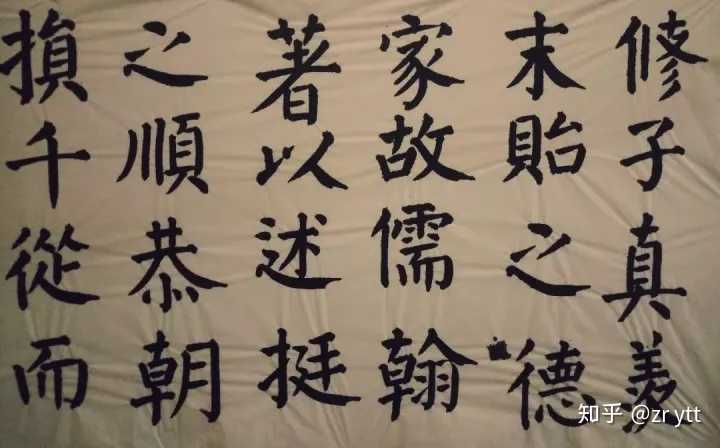 修子真
末貽之德
家故儒翰
著以述挺
之順恭朝
損千從而
知乎 @zr ytt